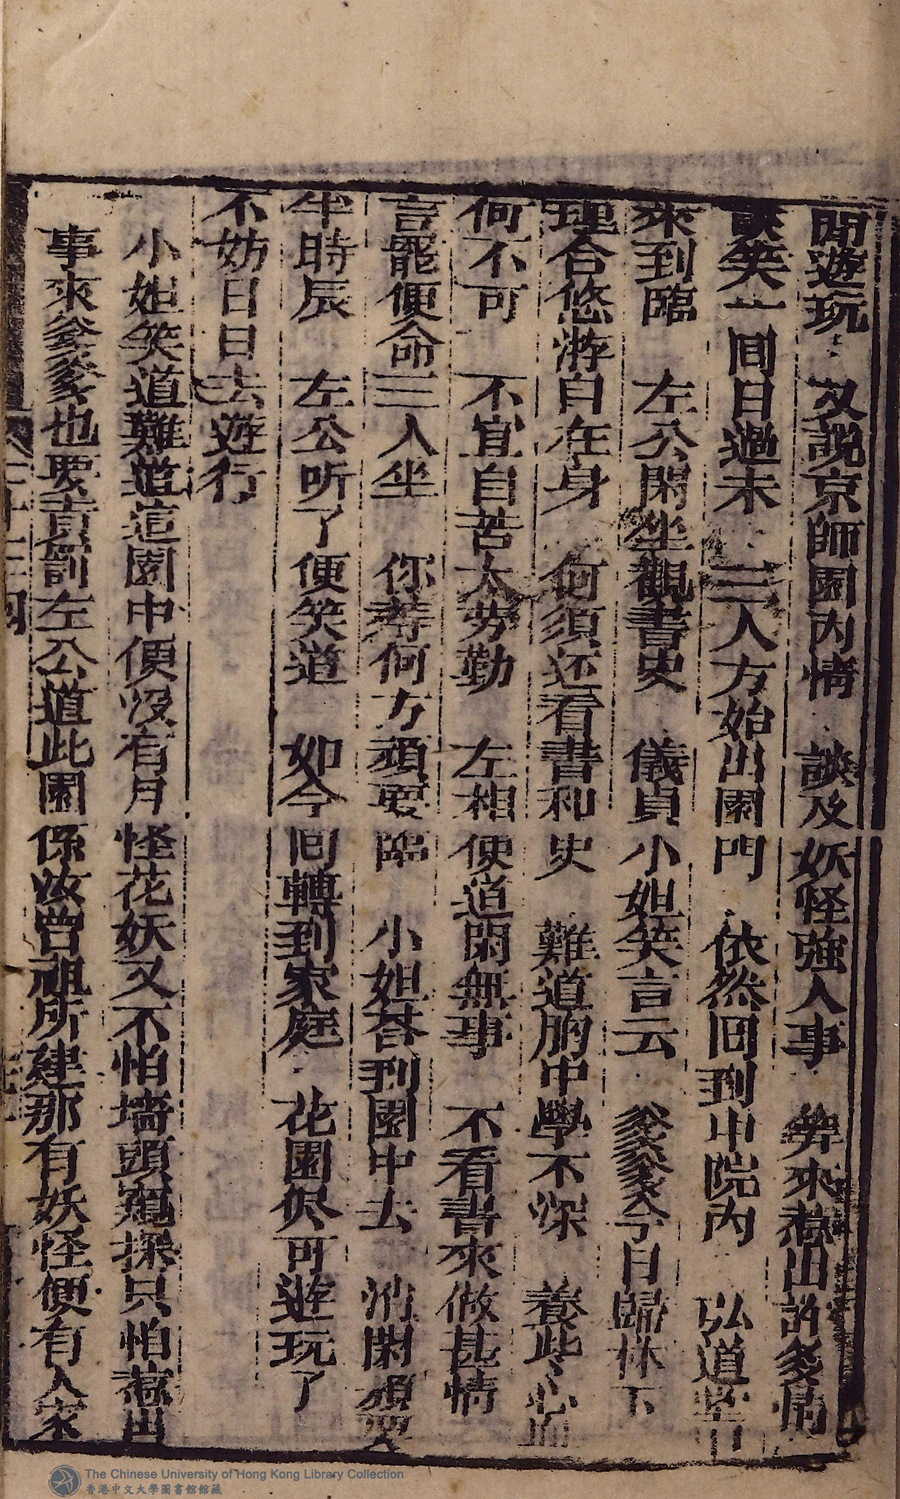 閒遊玩 及説京師園内情 談及妖怪強人事 筭來惹出許多情
談笑一間日過未 三人方始出園門 依然回到中院内 弘道堂中
來到臨 左公閑坐觀書史 儀貞小姐笑言云 爹爹今日歸林下
理合悠游自在身 何須还看書和史 難道胸中學不深 養些心血
何不可 不宜自苦太劳勤 左相便道閑無事 不看書來做甚情
言罷便命三人坐 你䓁何方頑耍臨 小姐荅到園中去 消閑頑耍
半時辰 左公听了便笑道 如今囘轉到家庭 花園侭可遊玩了
不妨日日去遊行
小姐笑道難道這園中便没有月怪花妖又不怕墻頭窺探只怕惹出
事來爹爹也要責罰左公道此園係汝曾祖所建那有妖怪便有人家
The Chinese University of Hong Kong Library Collection
香港中文大學圖書館館藏